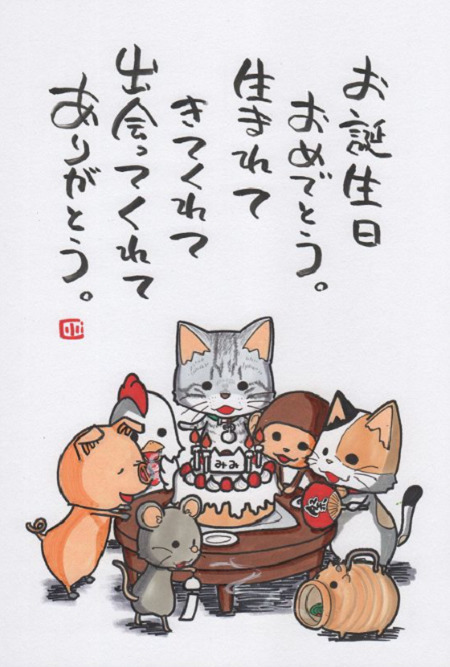 お誕生日
おめでとう。
生まれて
きてくれて
出会ってくれて
ありがとう。
みみ